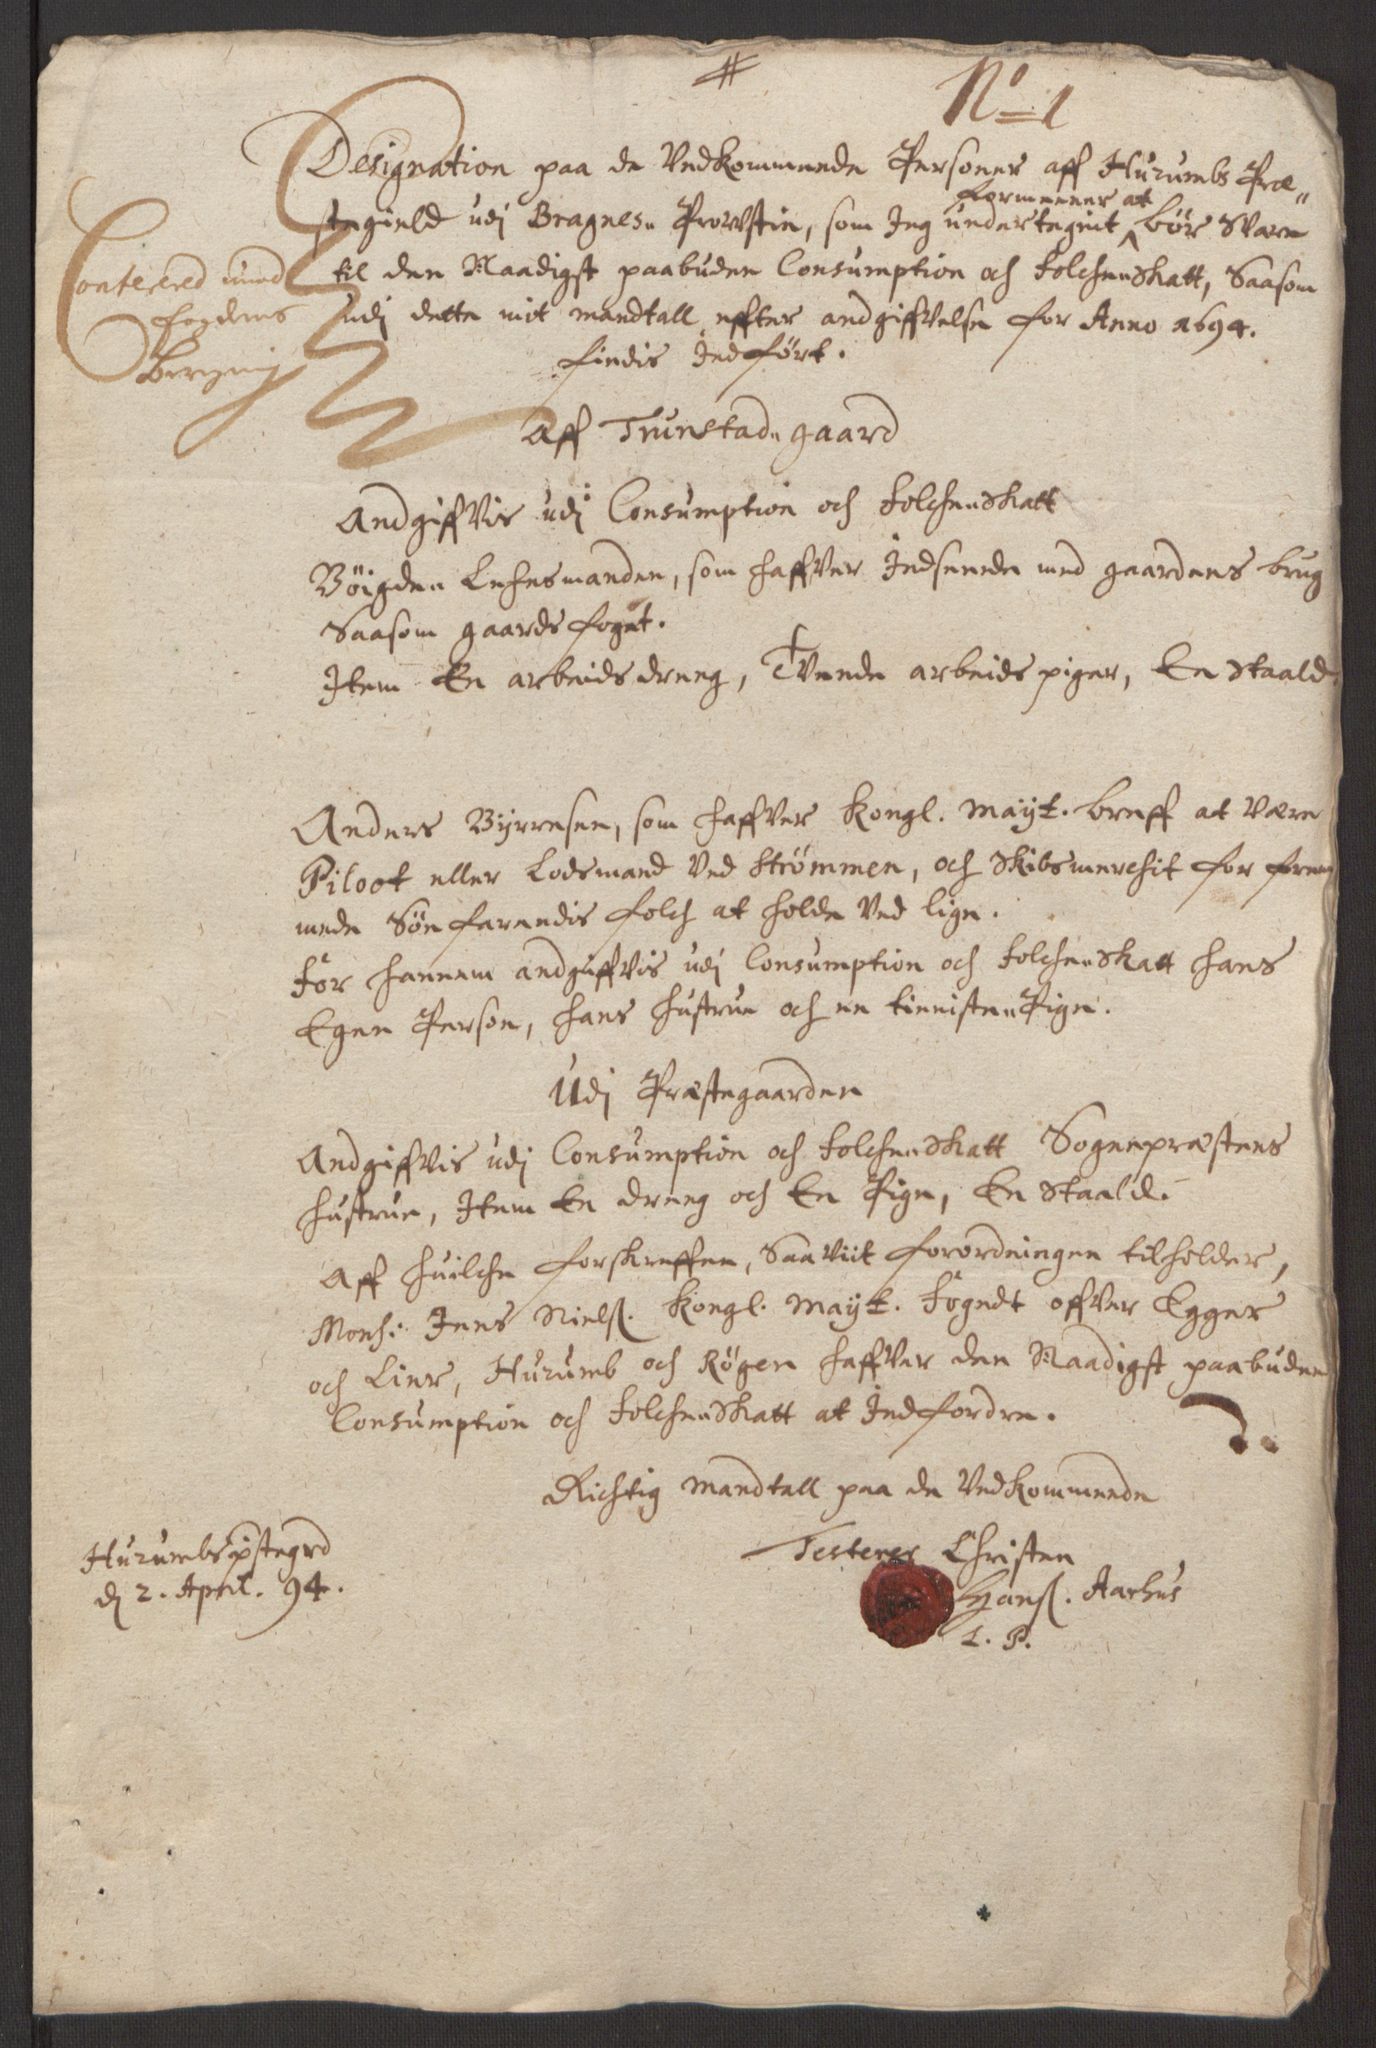 N° 1
Designation paa de Vedkommende Personer aff Hurumbs Præ„
formeener at
stegield udj Bragnes„ Prowstie, som Jeg undertegnet bør Svare
til den Naadigst paabuden Consumption och Folche„Skatt, Saasom
udj dette mit mandtall effter andgiffvelse for Anno 1694.
findis Jndført.
Confererd med
fogdens
Aff Trunstad„ gaard
Andgiffvis udj Consumption och Folche„Skatt
Böigde„ Lehnsmanden, som haffver Jndseende med gaardens brug
Saasom gaards foget.
Item En arbeids dreng, Tvende arbeids piger, En Staald.
Anders Byrresen, som haffver Kongl. Mayt. breff at være
Piloot eller Lodsmand Ved Strömmen, och Skibsmerchit for frem„
mede Söefarendis folch at holde Ved lige.
För hannem andgiffvis udj Consumption och Folche„Skatt hans
Egen Person, hans hustrue och en tieniste„Pige.
Udj Præstegaarden
Andgiffvis udj Consumption och Folche„Skatt Sognepræstens
hustrue, Item En dreng och En Pige, En Staald.
Aff huilche forskreffne, Saaviit forordningen tilholder,
Monsr. Jens Nielß. Kongl. Mayt. Fogedt offver Egger
och Lier, Hurumb och Røgen haffver den Naadigst paabuden
Consumption och Folche„Skatt at Jndfordre.
Richtig Mandtall paa de Vedkommende
Hurumbs pstegrd
dj 2. April. 94.
Testerer Christen
Hanß. Aarhus
L. P.